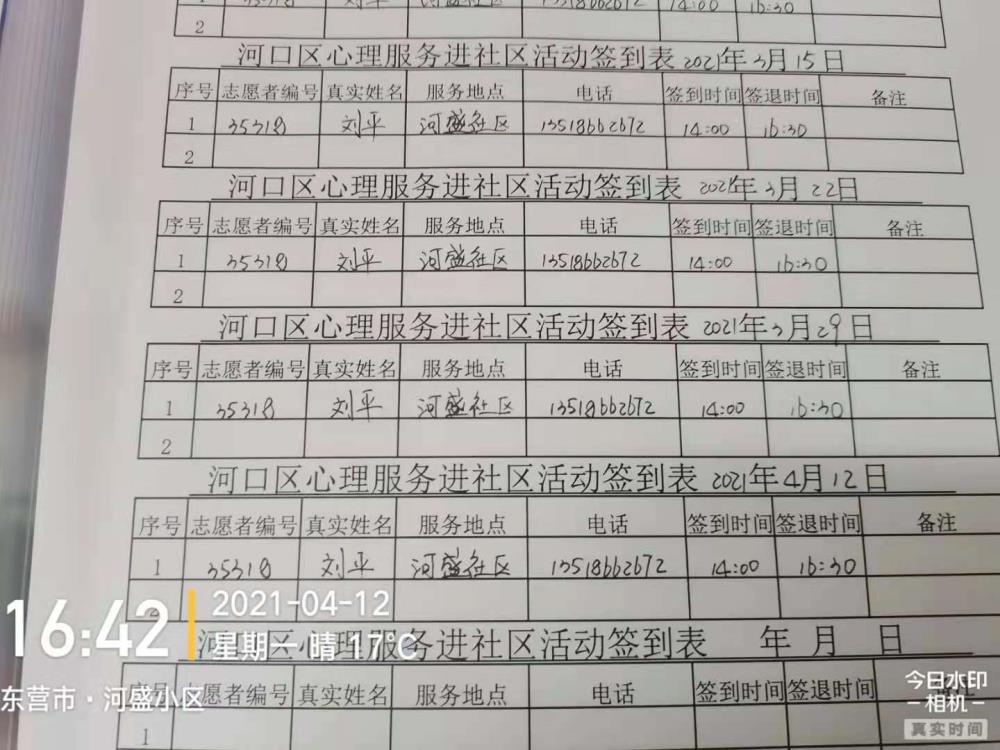 1 35318 刘平 河盛社区 13518662672 14:00 16:30
2
河口区心理服务进社区活动签到表 2021年3月15日
序号 志愿者编号 真实姓名 服务地点 电话 签到时间 签退时间 备注
1 35318 刘平 河盛社区 13518662672 14:00 16:30
2
河口区心理服务进社区活动签到表 2021年3月22日
序号 志愿者编号 真实姓名 服务地点 电话 签到时间 签退时间 备注
1 35318 刘平 河盛社区 13518662672 14:00 16:30
2
河口区心理服务进社区活动签到表 2021年3月29日
序号 志愿者编号 真实姓名 服务地点 电话 签到时间 签退时间 备注
1 35318 刘平 河盛社区 13518662672 14:00 16:30
2
河口区心理服务进社区活动签到表 2021年4月12日
序号 志愿者编号 真实姓名 服务地点 电话 签到时间 签退时间 备注
1 35318 刘平 河盛社区 13518662672 14:00 16:30
2
河口区心理服务进社区活动签到表 年 月 日
志愿者编号 真实姓名 服务地点 电话 签到时间 签退时间
1
16:42
2021-04-12
星期一 晴 17℃
东营市·河盛小区
今日水印
-相机-
真实时间